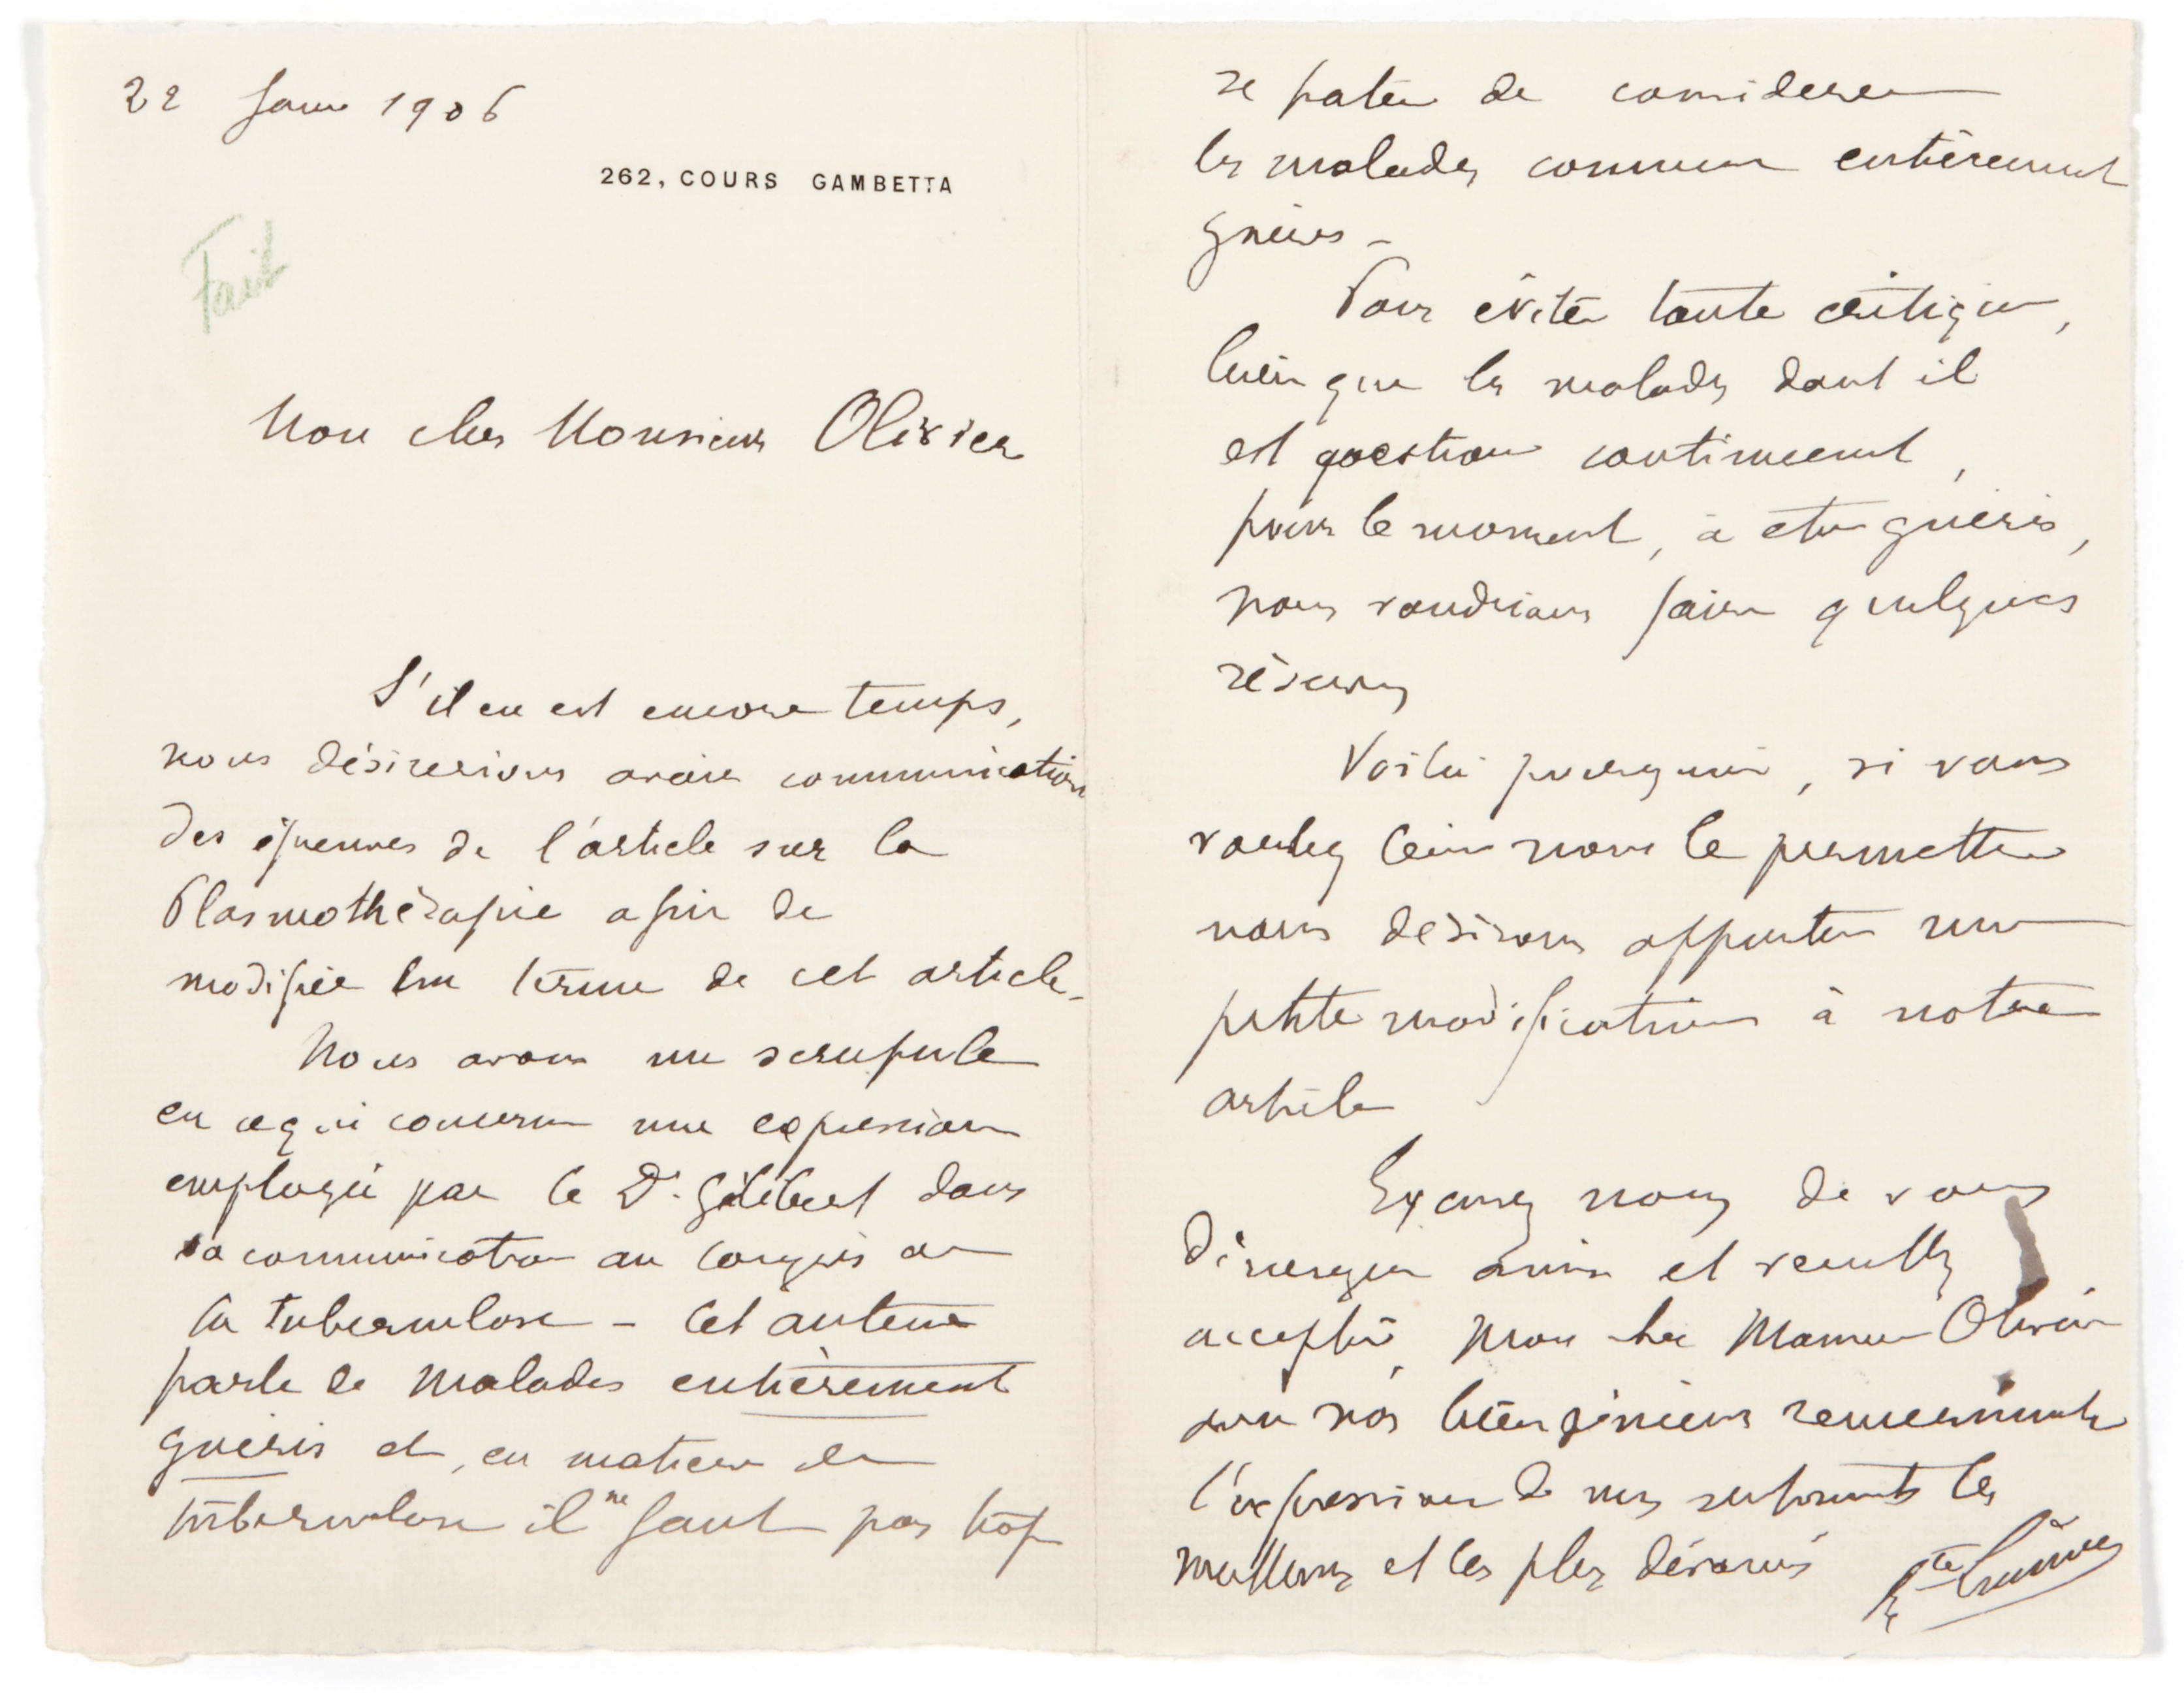 22 Janv 1906
262, COURS GAMBETTA
Fait
Mon cher Monsieur Olivier
S'il en est encore temps,
nous désirerions avoir communication
des épreuves de l'article sur la
Plasmothérapie afin de
modifier un terme de cet article.
Nous avons un scrupule
en ce qui concerne une expression
employée par le Dr. Gilibert dans
sa communication au Congrès de
la tuberculose - Cet auteur
parle de malades entièrement
guéris et, en matière de
tuberculose il ne faut pas trop
se hâter de considérer
les malades comme entièrement
guéris -
Pour éviter toute critique,
bien que les malades dont il
est question continuent,
pour le moment, à être guéris,
nous voudrions faire quelques
réserves
Voilà pourquoi, si vous
voulez bien nous le permettre
nous désirons apporter une
petite modification à notre
article
Excusez nous de vous
déranger ainsi et veuillez
accepter, mon cher Monsieur Olivier
avec nos bien sincères remerciements
l'expression de nos sentiments les
meilleurs et les plus dévoués